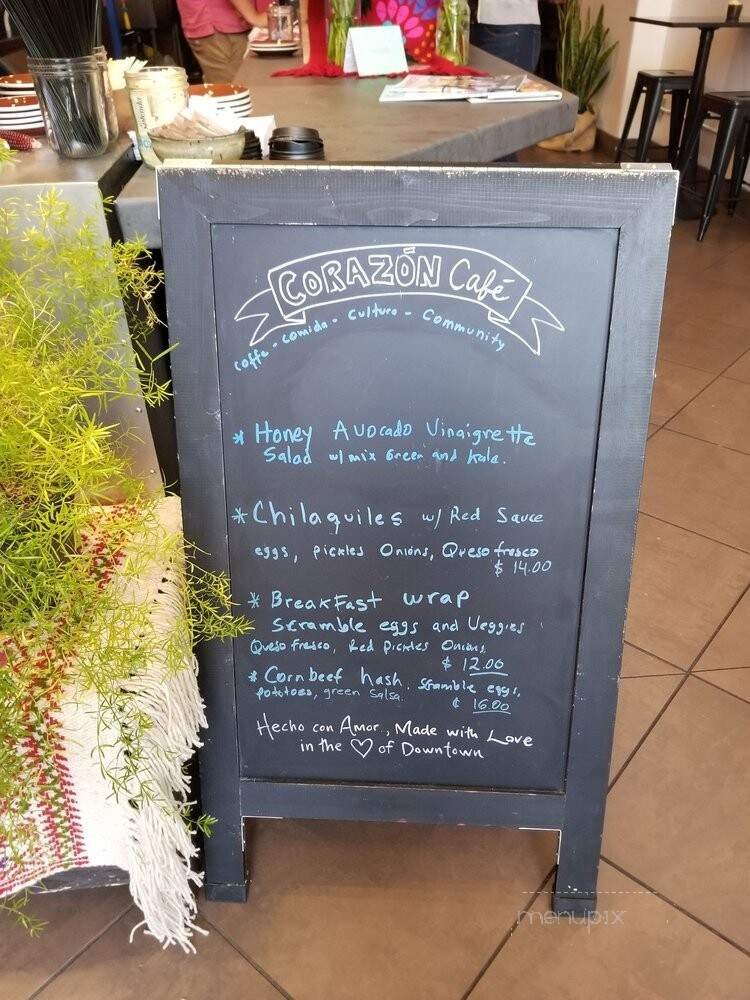 CORAZÓN Café
coffe - comida - Cultura - Community
* Honey Avocado Vinaigrette
Salad w/ mix Green and Kale.
* Chilaquiles w/ Red Sauce
eggs, pickles Onions, Queso fresco
$ 14.00
* Breakfast wrap
Scramble eggs and Veggies
Queso fresco, Red Pickles Onions
$ 12.00
* Corn beef hash. Scramble eggs,
pototoes, green Salsa.
$ 16.00
Hecho con Amor, Made with Love
in the ♡ of Downtown
menupix